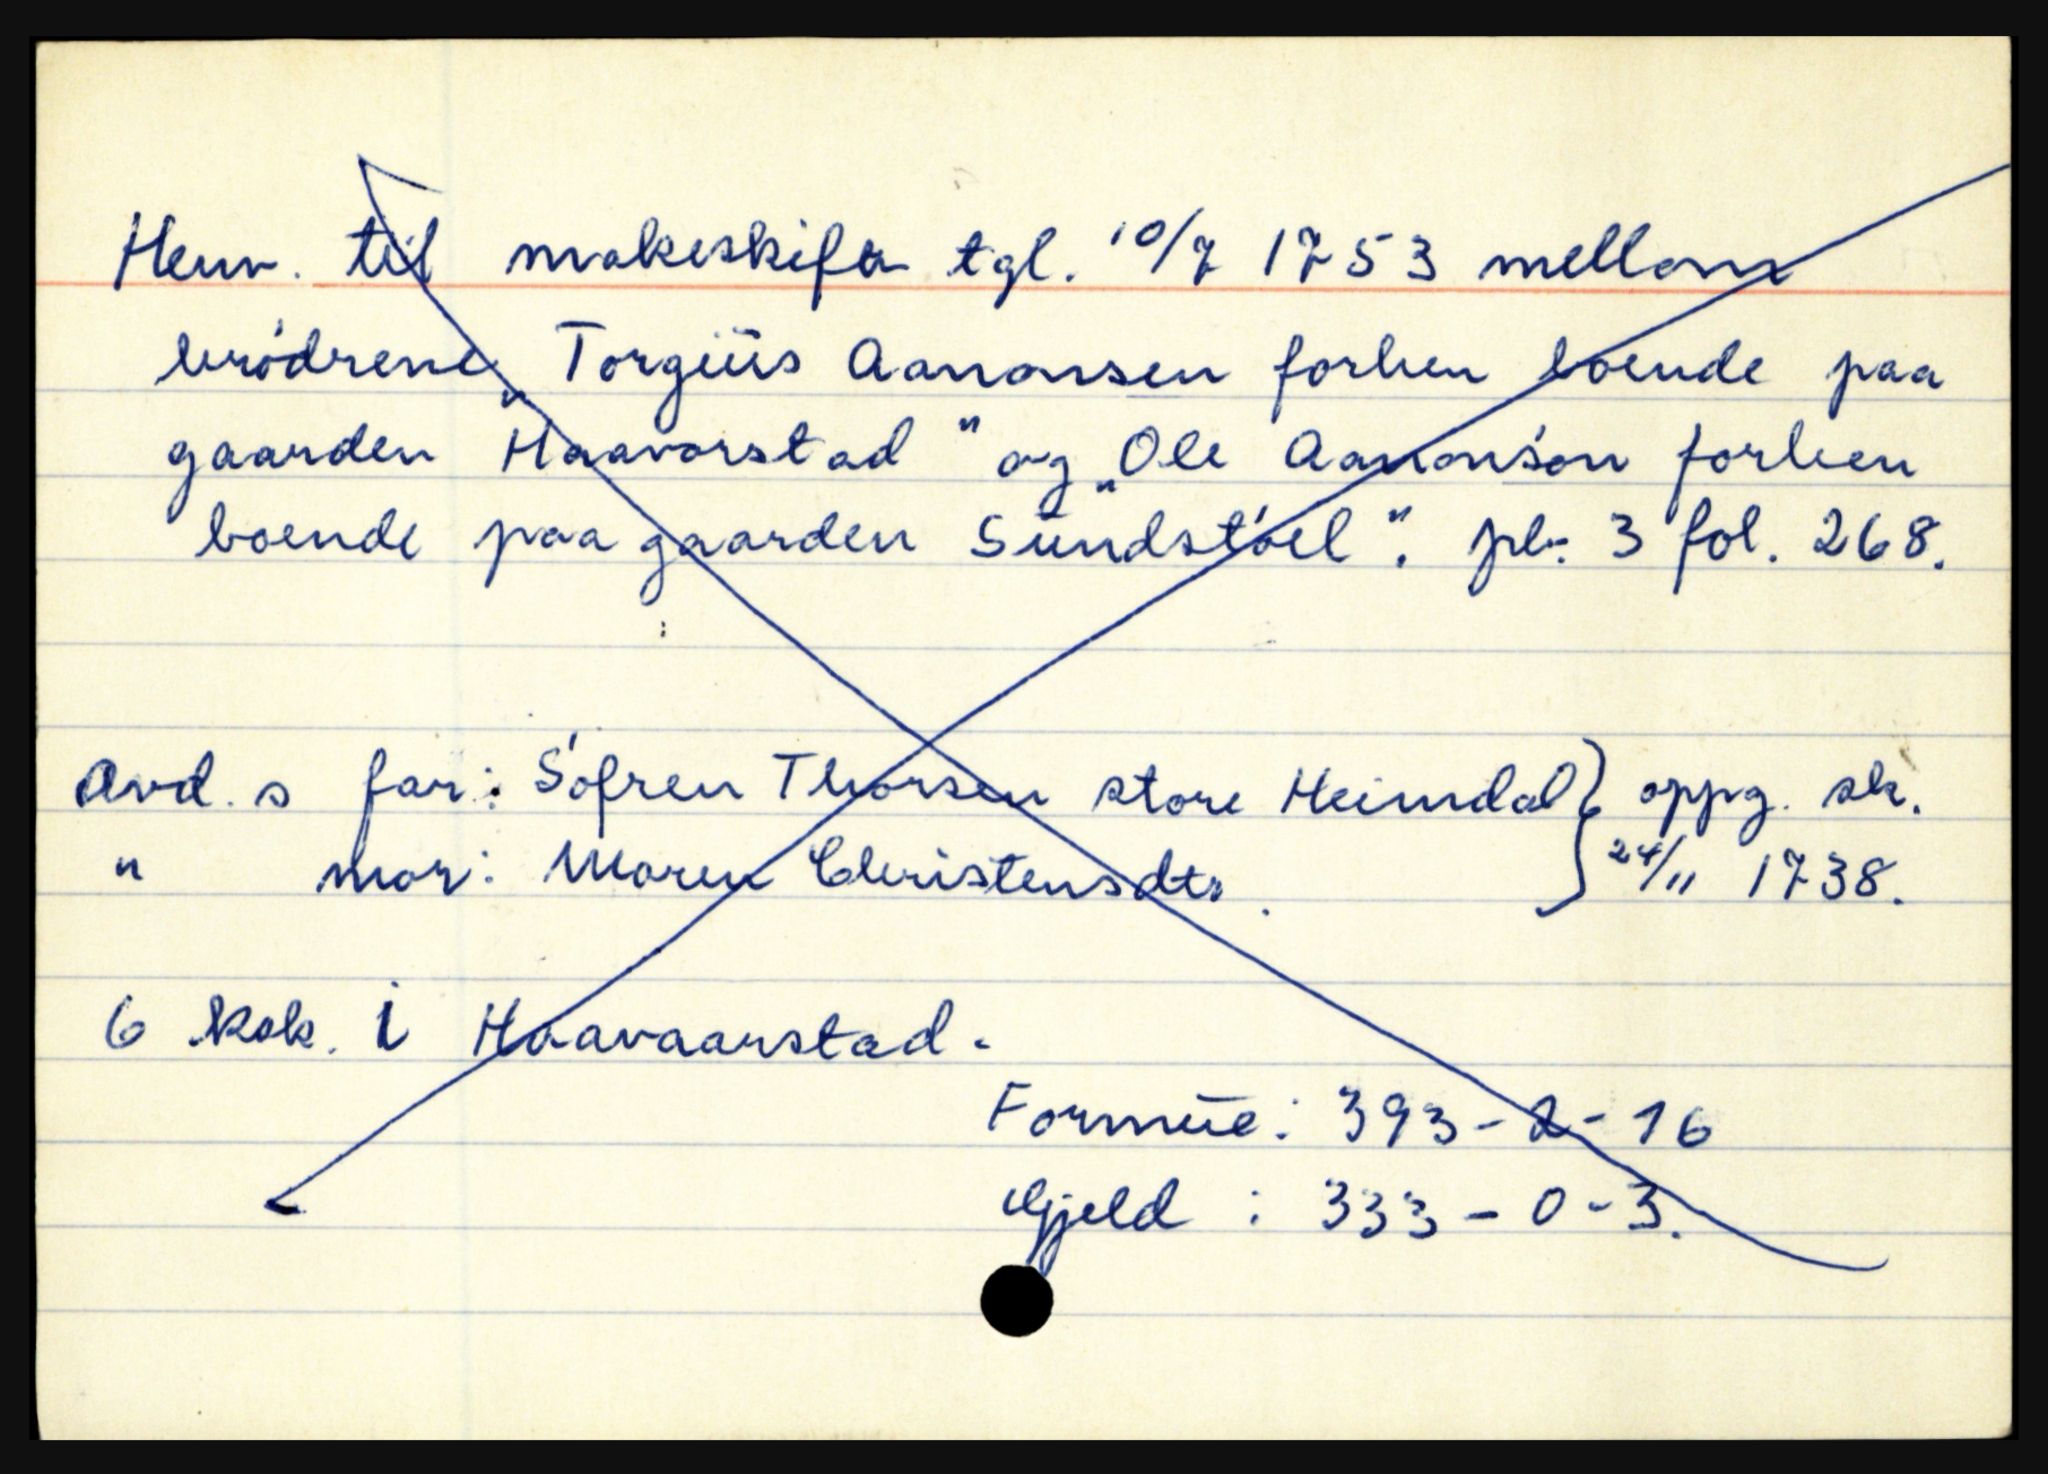 Henv. til makeskifte tgl. 10/7 1753 mellom
brødrene "Torgius Aanonsen forhen boende paa
gaarden Haavorstad" og "Ole Aanonsøn forhen
boende paa gaarden Sundstøel". pb. 3 fol. 268.
Avd. s far: Søfren Thorsen store Heimdal } oppg. sk.
" mor: Maren Christensdtr. } 24/11 1738.
6 kok. i Haavaarstad.
Formue: 393-2-16
Gjeld : 333-0-3.